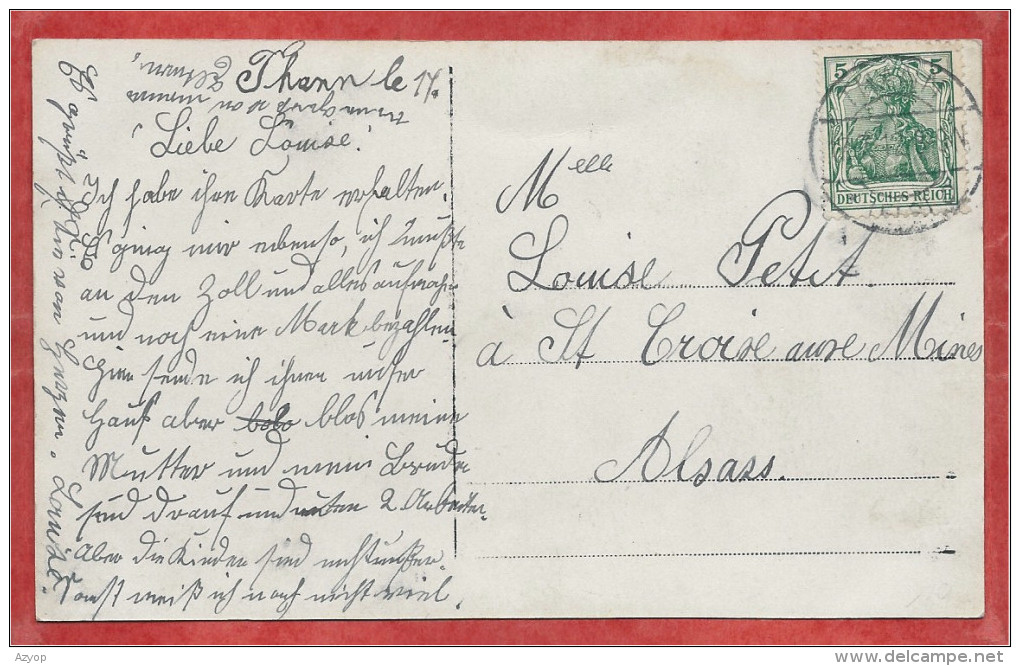 Thann le 17.
Liebe Louise!
Ich habe ihre Karte erhalten.
Es ging mir ebenso, ich mußte
an den Zoll und alles aufmachen
und noch eine Mark bezahlen.
Hier sende ich ihnen unser
Haus aber blos meine
Mutter und mein Bruder
sind drauf und unten 2 Arbeiter.
Aber die Kinder sind nicht unser.
Sonst weiß ich noch nicht viel.
Es grüßt Sie von Herzen. Louise.
5 5
DEUTSCHES REICH
Melle
Louise Petit.
à St Croixe auxe Mines
Alsass.
Azyop
http://www.delcampe.net